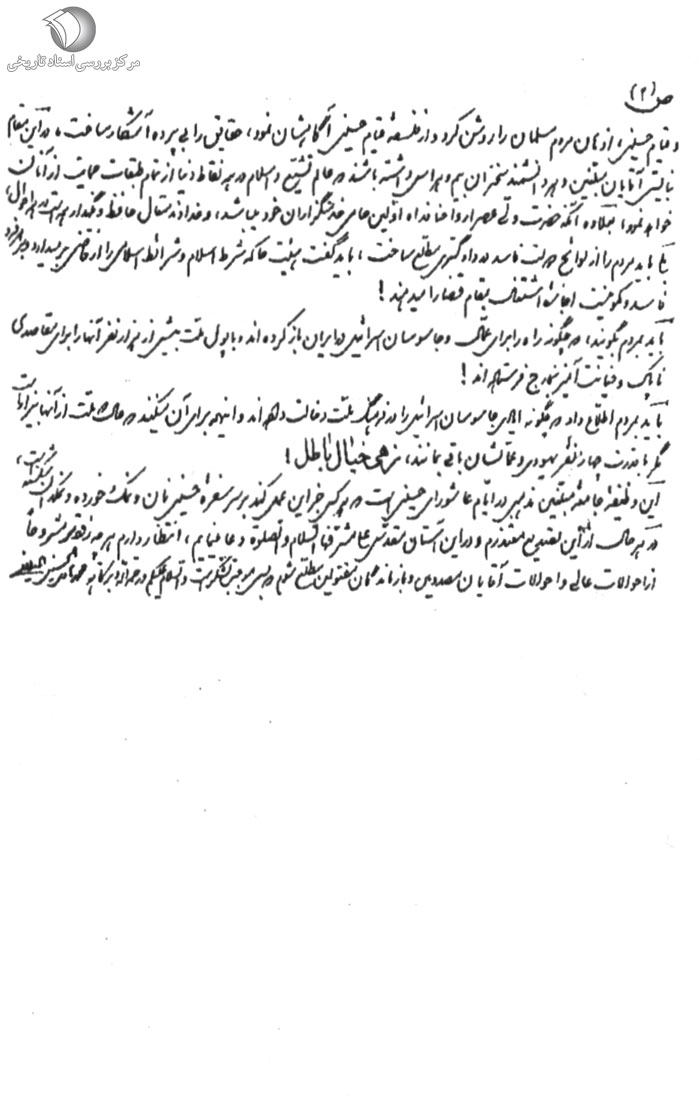 مرکز بررسی اسناد تاریخی
ص (۲)
و قیام حسینی، اذهان مردم مسلمان را روشن کرد و از فلسفهٔ قیام حسینی آگاهیشان نمود، حقایق را بی پرده آشکار ساخت، در این مقام
بایستی آقایان مبلغین و هر دانشمند سخنران بیم و هراسی نداشته باشند در عالم تشیع و اسلام در هر نقاط دنیا از تمام طبقات حمایت از آنان
خواهد نمود، بعلاوه آنکه حضرت ولی عصر ارواحنا فداه اولین حامی خدمتگزاران خود میباشد، و خداوند متعال حافظ و نگهدار است در هر احوال،
باید مردم را از لوایح دولت فاسد دادگستری مطلع ساخت، باید گفت هیئت حاکمه شرط اسلام و شرائط اسلامی را از قاضی برمیدارد و هر فرد
فاسد و کمونیست اجازهٔ اشتغال بمقام قضا را میدهند!
باید بمردم بگویند، که چگونه راه را برای عمال و جاسوسان اسرائیل در ایران باز کرده اند و با پول ملت بیش از هزار نفر آنها را برای مقاصدی
ناپاک و خیانت آمیز بخارج فرستاده اند!
باید بمردم اطلاع داد که چگونه ایادی جاسوسان اسرائیل را در فرهنگ ملت دخالت داده اند و اینهمه برای آن میکنند در حالیکه ملت از آنها بیزار است
مگر با قدرت چهار نفر یهودی و عمالشان باقی بمانند، زهی خیال باطل!
این وظیفهٔ جامعهٔ مبلغین مذهبی در ایام عاشورای حسینی است که هر کس جز این عمل کند بر سر سفرهٔ حسینی نان و نمک خورده و نمکدان شکسته است،
در هر حال از این تصدیع معتذرم و در این آستان مقدس علی مشرفها السلام و الصلوة دعا مینمایم، انتظار دارم هر چه زودتر مشروحاً
از احوالات عالی و احوالات آقایان مصدومین و بازماندگان مقتولین مطلع شوم که بسی موجب تشکر است والسلام علیکم و رحمة الله و برکاته